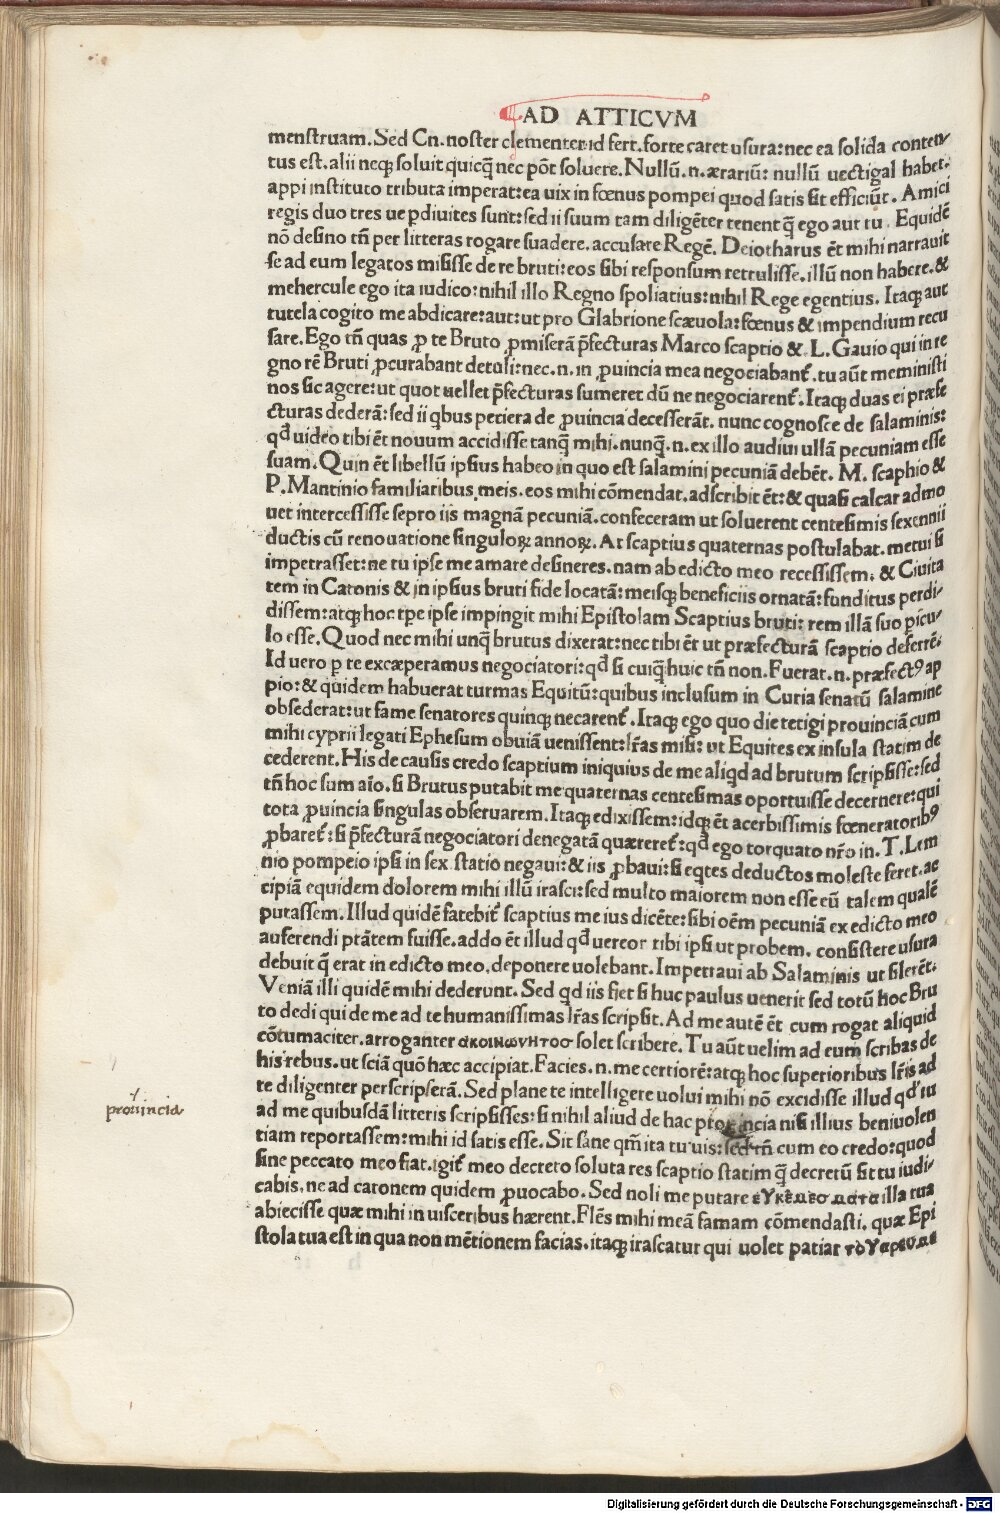 AD ATTICVM
menstruam. Sed Cn. noster clementer id fert. forte caret usura: nec ea solida conten-
tus est. alii neqꝫ soluit quicq̄ nec põt soluere. Nullũ. n. ærariũ: nullũ uectigal habet.
appi instituto tributa imperat: ea uix in fœnus pompei quod satis sit efficiũt. Amici
regis duo tres ue ꝑdiuites sunt: sed ii suum tam diligẽter tenent q̄ ego aut tu. Equidẽ
nõ desino tñ per litteras rogare suadere. accusare Regẽ. Deiotharus ẽt mihi narrauit
se ad eum legatos misisse de re bruti: eos sibi responsum rettulisse. illũ non habere. &
mehercule ego ita iudico: nihil illo Regno spoliatius: nihil Rege egentius. Itaqꝫ aut
tutela cogito me abdicare: aut: ut pro Glabrione scæuola: fœnus & impendium recu
sare. Ego tñ quas ꝓ te Bruto ꝓmiserã p̄fecturas Marco scaptio & L. Gauio qui in re
gno rẽ Bruti ꝓcurabant detuli: nec. n. in ꝓuincia mea negociabant᷑. tu aũt meministi
nos sic agere: ut quot uellet p̄fecturas sumeret dũ ne negociarent᷑. Itaqꝫ duas ei præfe
cturas dederã: sed ii qbus petiera de ꝓuincia decesserãt. nunc cognosce de salaminis:
qd̓ uideo tibi ẽt nouum accidisse tanq̄ mihi. nunq̄. n. ex illo audiui ullã pecuniam esse
suam. Quin ẽt libellũ ipsius habeo in quo est salamini pecuniã debẽt. M. scaphio &
P. Mantinio familiaribus meis. eos mihi cõmendat. adscribit ẽt: & quasi calcar admo
uet intercessisse se pro iis magnã pecuniã. confeceram ut soluerent centesimis sexennii
ductis cũ renouatione singuloꝝ annoꝝ. At scaptius quaternas postulabat. metui si
impetrasset: ne tu ipse me amare desineres. nam ab edicto meo recessissem. & Ciuita
tem in Catonis & in ipsius bruti fide locatã: meisqꝫ beneficiis ornatã: funditus perdi-
dissem: atqꝫ hoc tpe ipse impingit mihi Epistolam Scaptius bruti: rem illã suo ꝑicu-
lo esse. Quod nec mihi unq̄ brutus dixerat: nec tibi ẽt ut præfecturã scaptio deferrẽ.
Id uero ꝑ te excæperamus negociatori: qd̓ si cuiq̄ huic tñ non. Fuerat. n. præfectꝰ ap
pio: & quidem habuerat turmas Equitũ: quibus inclusum in Curia senatũ salamine
obsederat: ut fame senatores quinqꝫ necarent᷑. Itaqꝫ ego quo die tetigi prouinciã cum
mihi cyprii legati Ephesum obuiã uenissent: lr̄as misi: ut Equites ex insula statim de
cederent. His de causis credo scaptium iniquius de me aliqd ad brutum scripsisse: sed
tñ hoc sum aĩo. si Brutus putabit me quaternas centesimas oportuisse decernere: qui
tota ꝓuincia singulas obseruarem. Itaqꝫ edixissem: idqꝫ ẽt acerbissimis fœneratoribꝰ
ꝓbaret᷑: si p̄fecturã negociatori denegatã quæreret᷑: qd̓ ego torquato nr̃o in. T. Lem
nio pompeio ipsi in sex. statio negaui: & iis ꝓbaui: si eqtes deductos moleste feret. ac
cipiã equidem dolorem mihi illũ irasci: sed multo maiorem non esse eũ talem qualẽ
putassem. Illud quidẽ fatebit᷑ scaptius me ius dicẽte: sibi oẽm pecuniã ex edicto meo
auferendi ptãtem fuisse. addo ẽt illud qd̓ uereor tibi ipsi ut probem. consistere usura
debuit q̄ erat in edicto meo. deponere uolebant. Impetraui ab Salaminis ut silerẽt.
Veniã illi quidẽ mihi dederunt. Sed qd iis fiet si huc paulus uenerit sed totũ hoc Bru
to dedi qui de me ad te humanissimas lr̄as scripsit. Ad me autẽ ẽt cum rogat aliquid
cõtumaciter. arroganter ακοινωνητοσ solet scribere. Tu aũt uelim ad eum scribas de
his rebus. ut sciã quõ hæc accipiat. Facies. n. me certiorẽ: atqꝫ hoc superioribus lr̄is ad
te diligenter perscripserã. Sed plane te intelligere uolui mihi nõ excidisse illud qd̓ tu
ad me quibusdã litteris scripsisses: si nihil aliud de hac prouincia nisi illius beniuolen
tiam reportassem: mihi id satis esse. Sit sane qm̃ ita tu uis: sed tñ cum eo credo: quod
sine peccato meo fiat. igit᷑ meo decreto soluta res scaptio statim q̄ decretũ sit tu iudi-
cabis. ne ad catonem quidem ꝓuocabo. Sed noli me putare εγκελεσματα illa tua
abiecisse quæ mihi in uisceribus hærent. Flẽs mihi meã famam cõmendasti. quæ Epi
stola tua est in qua non mẽtionem facias. itaqꝫ irascatur qui uolet patiar το γαρευμε
prouincia
Digitalisierung gefördert durch die Deutsche Forschungsgemeinschaft - DFG